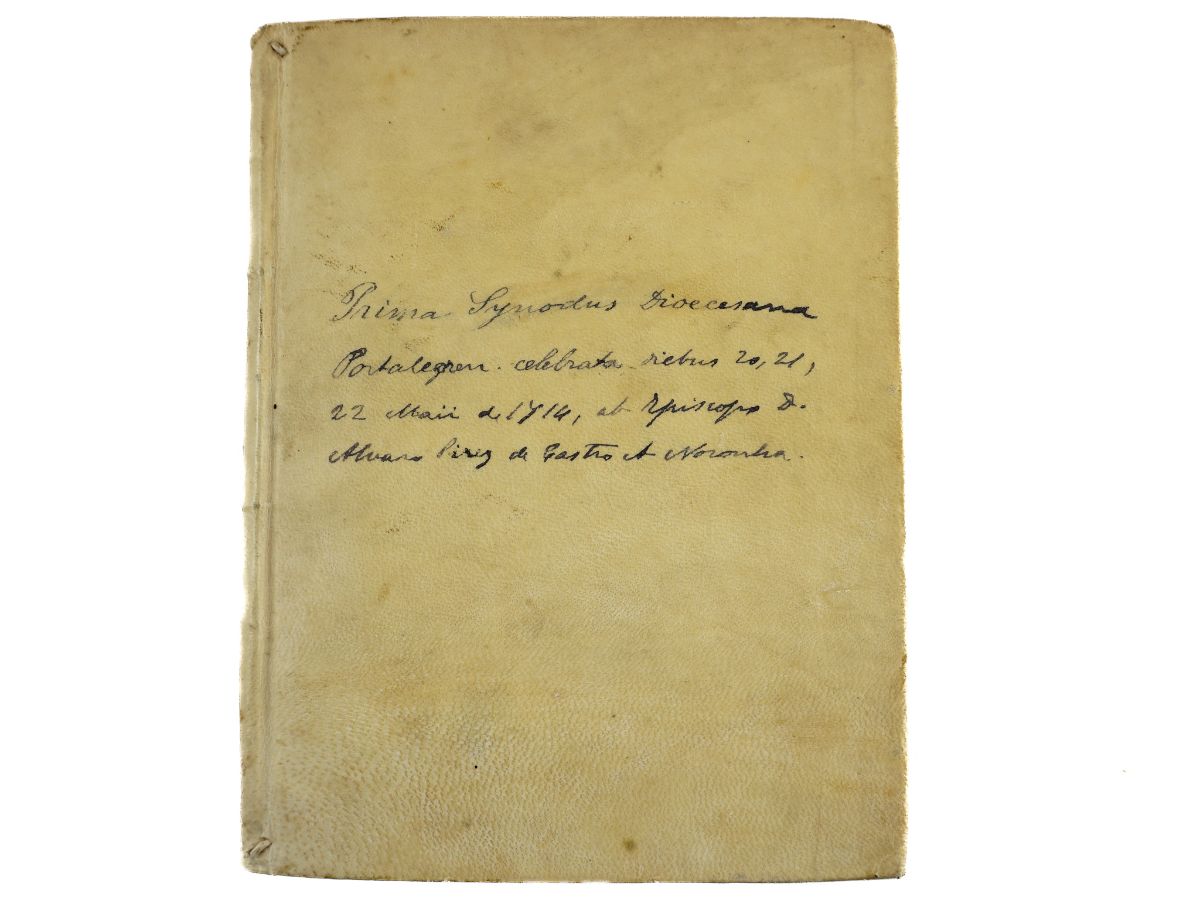 Prima Synodus Dioecesana
Portalegren. celebrata diebus 20, 21,
22 Maii de 1714, ab Episcopo D.
Alvaro Pirez de Castro et Noronha.